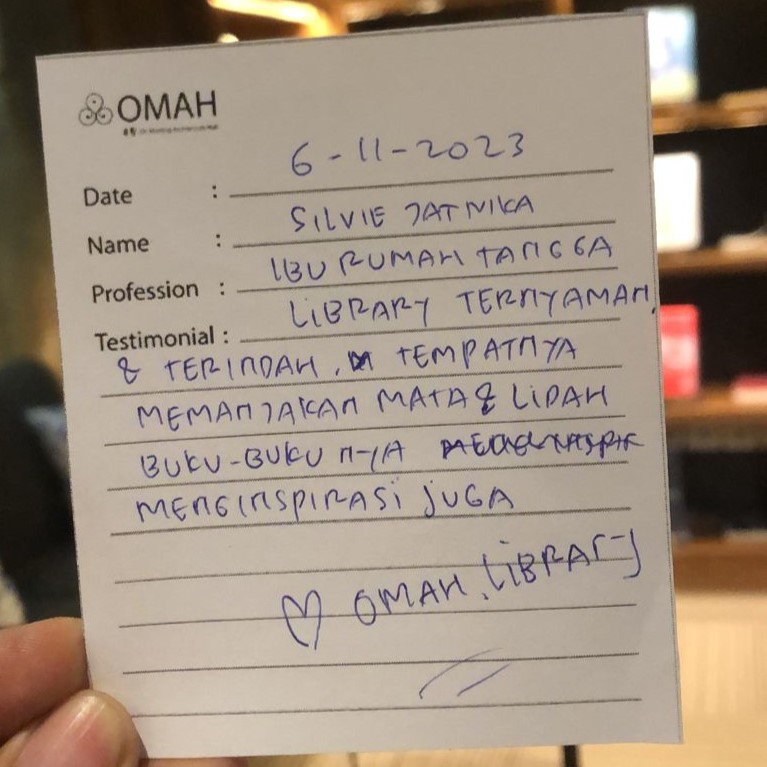 OMAH
Date : 6-11-2023
Name : SILVIE JATNIKA
Profession : IBU RUMAH TANGGA
Testimonial : LIBRARY TERNYAMAN,
& TERINDAH, TEMPATNYA
MEMANJAKAN MATA & LIDAH
BUKU-BUKU NYA
MENGINSPIRASI JUGA
♡ OMAH LIBRARY